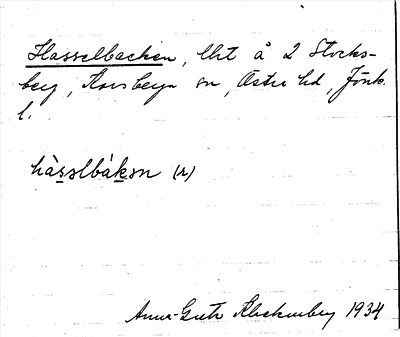 Hasselbacken, lht å 2 Stocks-
berg, Korsberga sn, Östra hd, Jönk.
l.
hàs̲slbàk̲ən (r)
Anna-Greta 1934